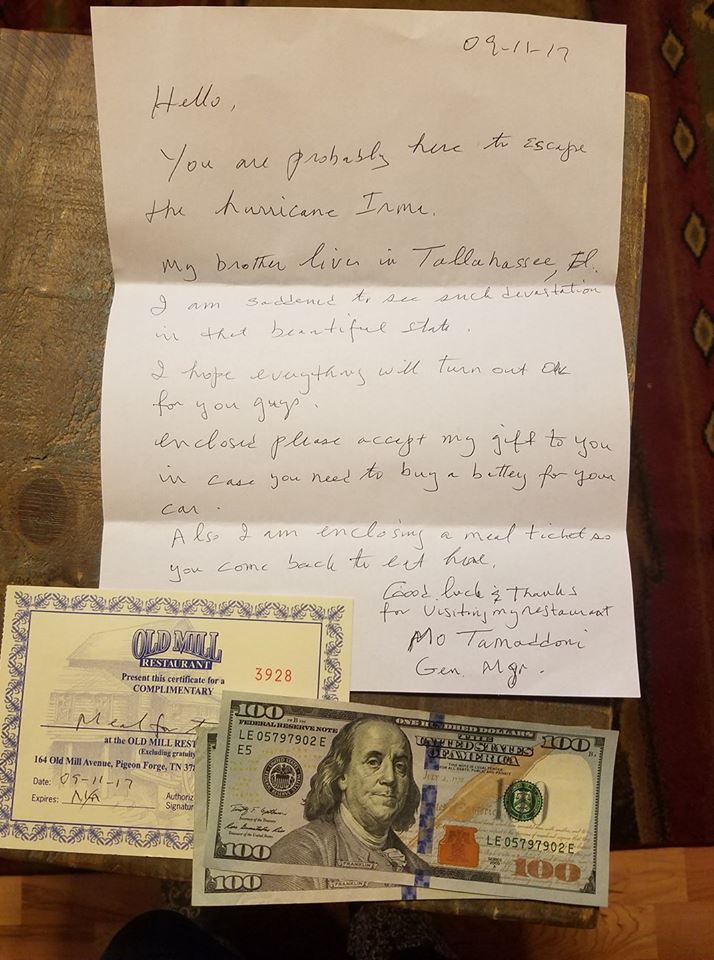 09-11-17
Hello,
You are probably here to escape
the hurricane Irma.
My brother lives in Tallahassee, Fl.
I am saddened to see such devastation
in that beautiful state.
I hope everything will turn out ok
for you guys.
enclosed please accept my gift to you
in case you need to buy a battery for your
car.
Also I am enclosing a meal ticket so
you come back to eat here.
Good luck & Thanks
for visiting my restaurant
Mo Tamaddoni
Gen. Mgr.
OLD MILL
RESTAURANT
3928
Present this certificate for a
COMPLIMENTARY
Meal for
at the OLD MILL REST
(Excluding gratuity
164 Old Mill Avenue, Pigeon Forge, TN 37
Date: 09-11-17
Expires: N/A
Authoriz
Signatur
100
FEDERAL RESERVE NOTE
ONE HUNDRED DOLLARS
100
LE 05797902 E
E5
THE
UNITED STATES
OF AMERICA
LE 05797902 E
100
FRANKLIN
100
100
FRANKLIN